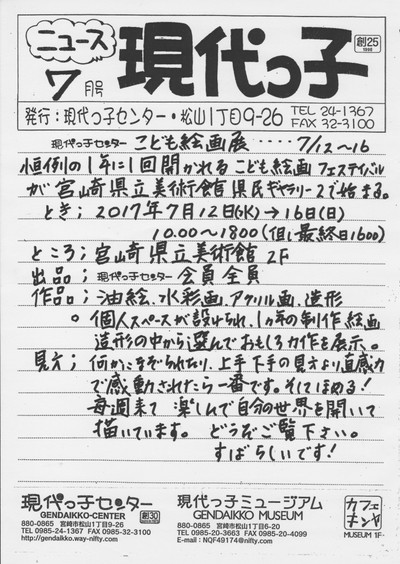 ニュース
7月号
現代っ子
創25
1998
発行:現代っ子センター・松山1丁目9-26
TEL 24-1367
FAX 32-3100
現代っ子センター こども絵画展‥‥7/12~16
恒例の1年に1回開かれるこども絵画フェスティバル
が宮崎県立美術館県民ギャラリー2で始まる。
とき;2017年7月12日(水)→16日(日)
10.00~1800(但し最終日1600)
ところ;宮崎県立美術館2F
出品;現代っ子センター会員全員
作品;油絵、水彩画、アクリル画、造形
○個人スペースが設けられ、1ヵ年の制作絵画
造形の中から選んでおもしろ力作を展示。
見方;何かこをぞられたり、上手下手の見方より直感力
で感動されたら一番です。そしてほめる!
毎週来て 楽しんで自分の世界を開いて
描いています。 どうぞご覧下さい。
すばらしいです!
現代っ子センター
GENDAIKKO-CENTER
創30
880-0865 宮崎市松山1丁目9-26
TEL 0985-24-1367 FAX 0985-32-3100
http://gendaikko.way-nifty.com/
現代っ子ミュージアム
GENDAIKKO MUSEUM
880-0865 宮崎市松山1丁目6-20
TEL 0985-20-3663 FAX 0985-20-4099
E-mail:NQF49174@nifty.com
カフェ
MUSEUM 1F